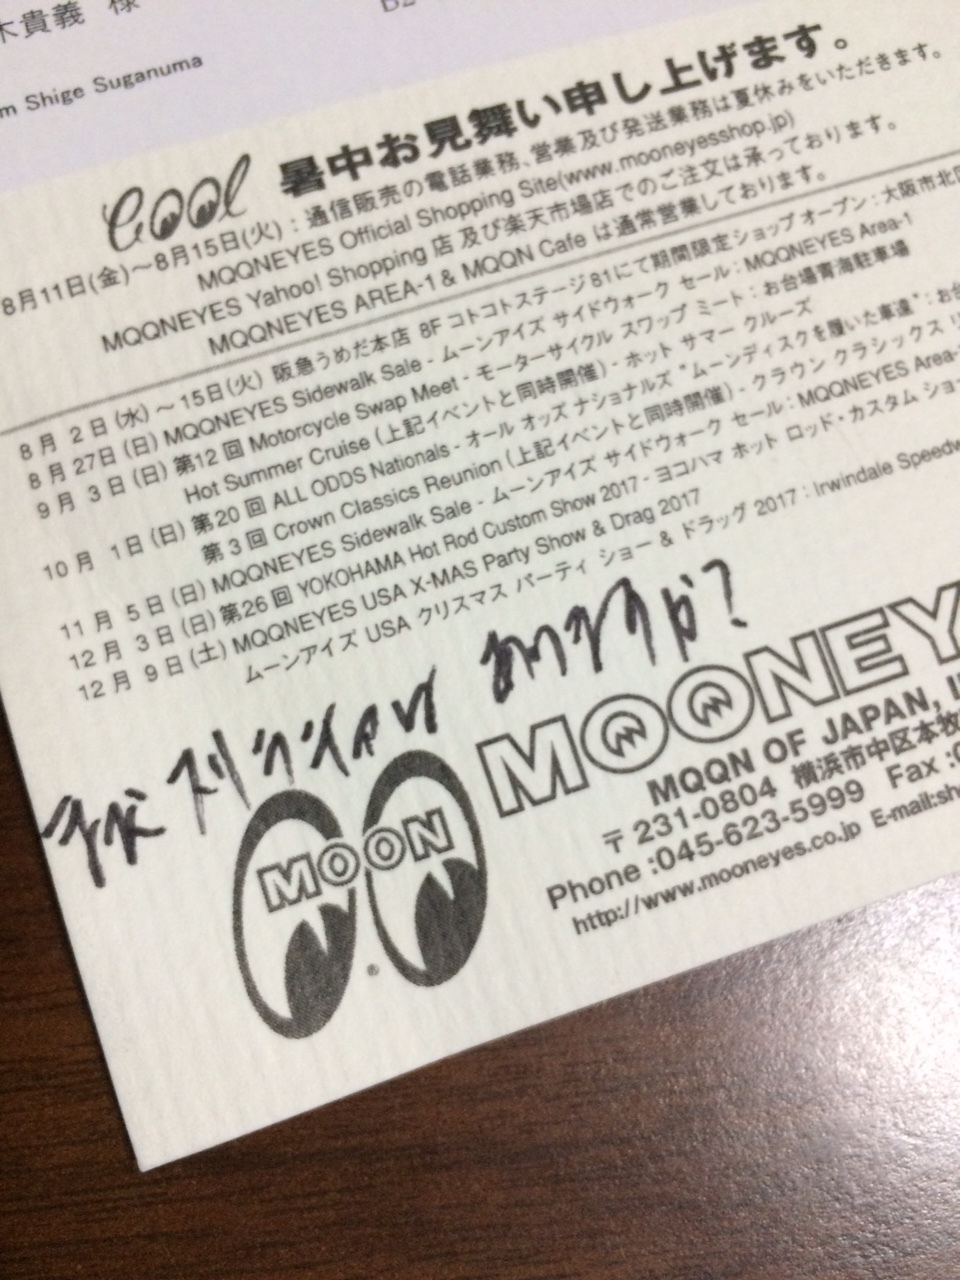 木貴義 様
m Shige Suganuma
Cool 暑中お見舞い申し上げます。
8月11日(金)～8月15日(火)：通信販売の電話業務、営業及び発送業務は夏休みをいただきます。
MQQNEYES Official Shopping Site(www.mooneyesshop.jp)
MQQNEYES Yahoo! Shopping 店 及び楽天市場店でのご注文は承っております。
MQQNEYES AREA-1 & MQQN Cafe は通常営業しております。
8月 2日(水)～15日(火) 阪急うめだ本店 8F コトコトステージ81にて期間限定ショップ オープン：大阪市北区
8月27日(日) MQQNEYES Sidewalk Sale - ムーンアイズ サイドウォーク セール：MQQNEYES Area-1
9月 3日(日) 第12回 Motorcycle Swap Meet - モーターサイクル スワップ ミート：お台場青海駐車場
Hot Summer Cruise (上記イベントと同時開催) - ホット サマー クルーズ
10月 1日(日) 第20回 ALL ODDS Nationals - オール オッズ ナショナルズ "ムーンディスクを履いた車達"：お台
第3回 Crown Classics Reunion (上記イベントと同時開催) - クラウン クラシックス リ
11月 5日(日) MQQNEYES Sidewalk Sale - ムーンアイズ サイドウォーク セール：MQQNEYES Area-
12月 3日(日) 第26回 YOKOHAMA Hot Rod Custom Show 2017 - ヨコハマ ホット ロッド・カスタム ショー
12月 9日(土) MQQNEYES USA X-MAS Party Show & Drag 2017
ムーンアイズ USA クリスマス パーティ ショー & ドラッグ 2017：Irwindale Speedw
ありますか?
MOON
MOONEY
MQQN OF JAPAN, I
〒231-0804 横浜市中区本牧
Phone :045-623-5999 Fax :0
http://www.mooneyes.co.jp E-mail:sh